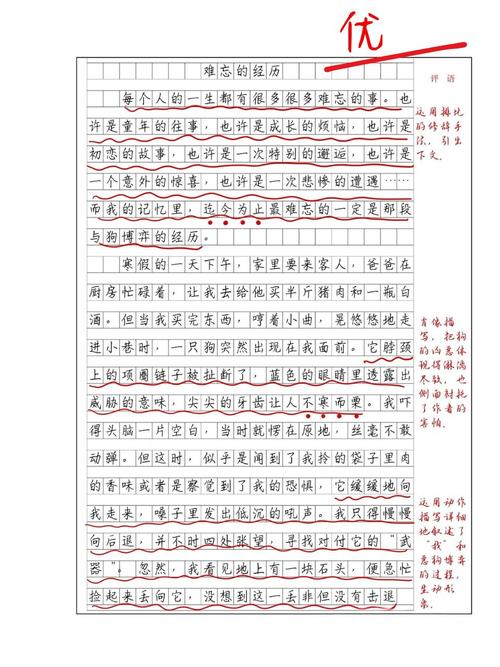 优
难忘的经历
评语
每个人的一生都有很多很多难忘的事。也
许是童年的往事，也许是成长的烦恼，也许是
初恋的故事，也许是一次特别的邂逅，也许是
一个意外的惊喜，也许是一次悲惨的遭遇……
而我的记忆里，迄今为止最难忘的一定是那段
与狗博弈的经历。
运用排比
的修辞手
法，引出
下文。
寒假的一天下午，家里要来客人，爸爸在
厨房忙碌着，让我去给他买半斤猪肉和一瓶白
酒。但当我买完东西，哼着小曲，晃悠悠地走
进小巷时，一只狗突然出现在我面前。它脖颈
上的项圈链子被扯断了，蓝色的眼睛里透露出
威胁的意味，尖尖的牙齿让人不寒而栗。我吓
得头脑一片空白，当时就愣在原地，丝毫不敢
动弹。但这时，似乎是闻到了我拎的袋子里肉
的香味或者是察觉到了我的恐惧，它缓缓地向
我走来，嗓子里发出低沉的吼声。我只得慢慢
向后退，并不时四处张望，寻找对付它的“武
器”。忽然，我看见地上有一块石头，便急忙
捡起来丢向它，没想到这一丢非但没有击退
肖像描
写，把狗
的凶恶体
现得淋漓
尽致，也
侧面衬托
了作者的
害怕。
运用动作
描写详细
地叙述了
“我”和
恶狗博弈
的过程，
生动形
象。